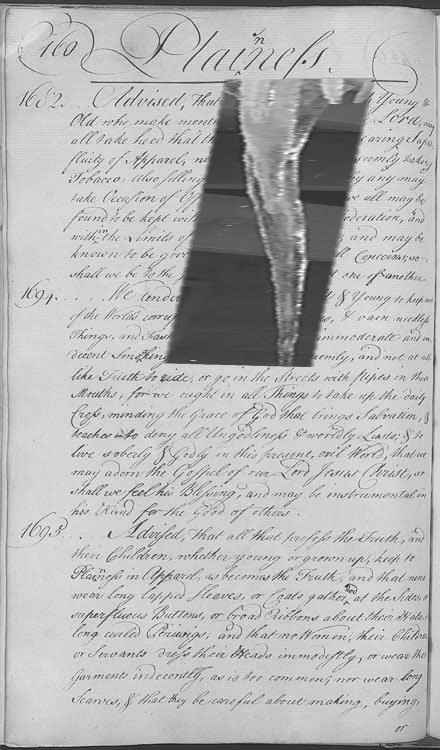 160 Plainness.
1682... Advised, that Young &
Old who make ment Lord, may
all take heed that th earing Supe
fluity of Apparel, ne seemly taking
Tobacco: also selling by any may
take Occasion of Of we all may be
found to be kept wit oderation, and
within the Limits of and may be
known to be gove ll Concerns, so
shall we be to the t one of another.
1694.... We tender & Young to keep out
of the Worlds corrup s, & vain needless
Things, and Fas immoderate and in-
decent Smoking emly, and not at all
like Truth to ride, or go in the Streets with pipes in their
Mouths, for we ought in all Things to take up the daily
Cross, minding the Grace of God that brings Salvation, &
teaches to deny all Ungodliness & worldly Lusts, & to
live soberly & Godly in this present, evil World, that we
may adorn the Gospel of our Lord Jesus Christ, so
shall we feel his Blessing, and may be instrumental in
his Hand for the Good of others.
1695... Advised, That all that profess the Truth, and
their Children, whether young or grown up, keep to
Plainness in Apparel, as becomes the Truth, and that none
wear long lapped Sleeves, or Coats gathered at the Sides, or
superfluous Buttons, or broad Ribbons about their Hats, or
long curled Perriwigs, and that no Women, their Children
or Servants dress their Heads immodestly, or wear their
Garments indecently, as is too common; nor wear long
Scarves, & that they be careful about making, buying,
or